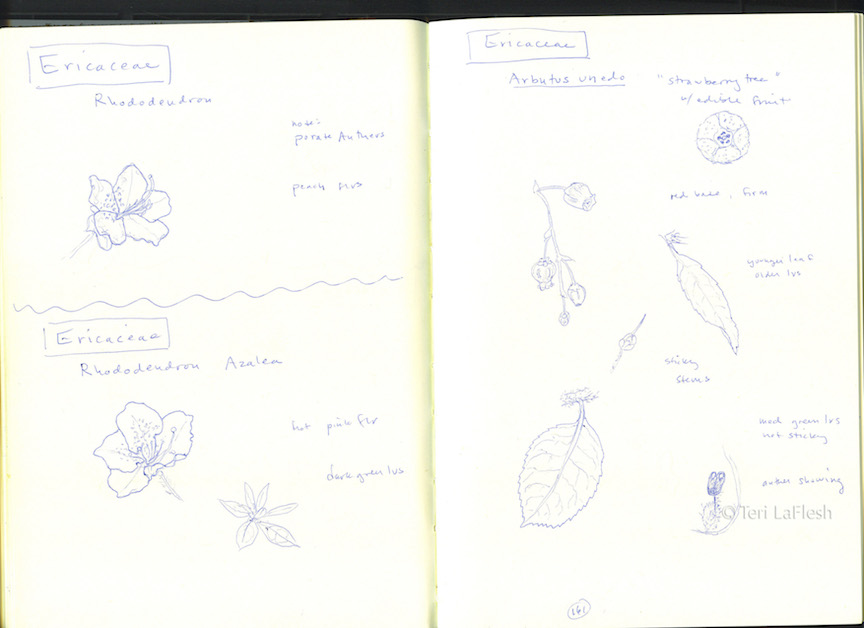 Ericaceae
Rhododendron
note:
porate Anthers
peach flrs
Ericaceae
Rhododendron Azalea
hot pink flr
dark green lvs
Ericaceae
Arbutus unedo "strawberry tree"
w/ edible fruit
red base, firm
younger leaf
older lvs
sticky
stems
med green lvs
not sticky
anther showing
©Teri LaFlesh
161